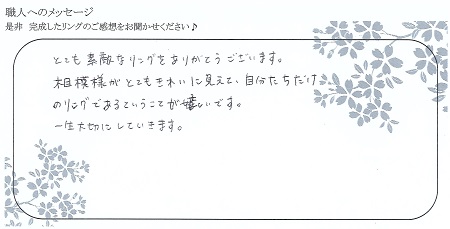 職人へのメッセージ
是非 完成したリングのご感想をお聞かせください♪
とても素敵なリングをありがとうございます。
相模様がとてもきれいに見えて、自分たちだけ
のリングであるということが嬉しいです。
一生大切にしていきます。